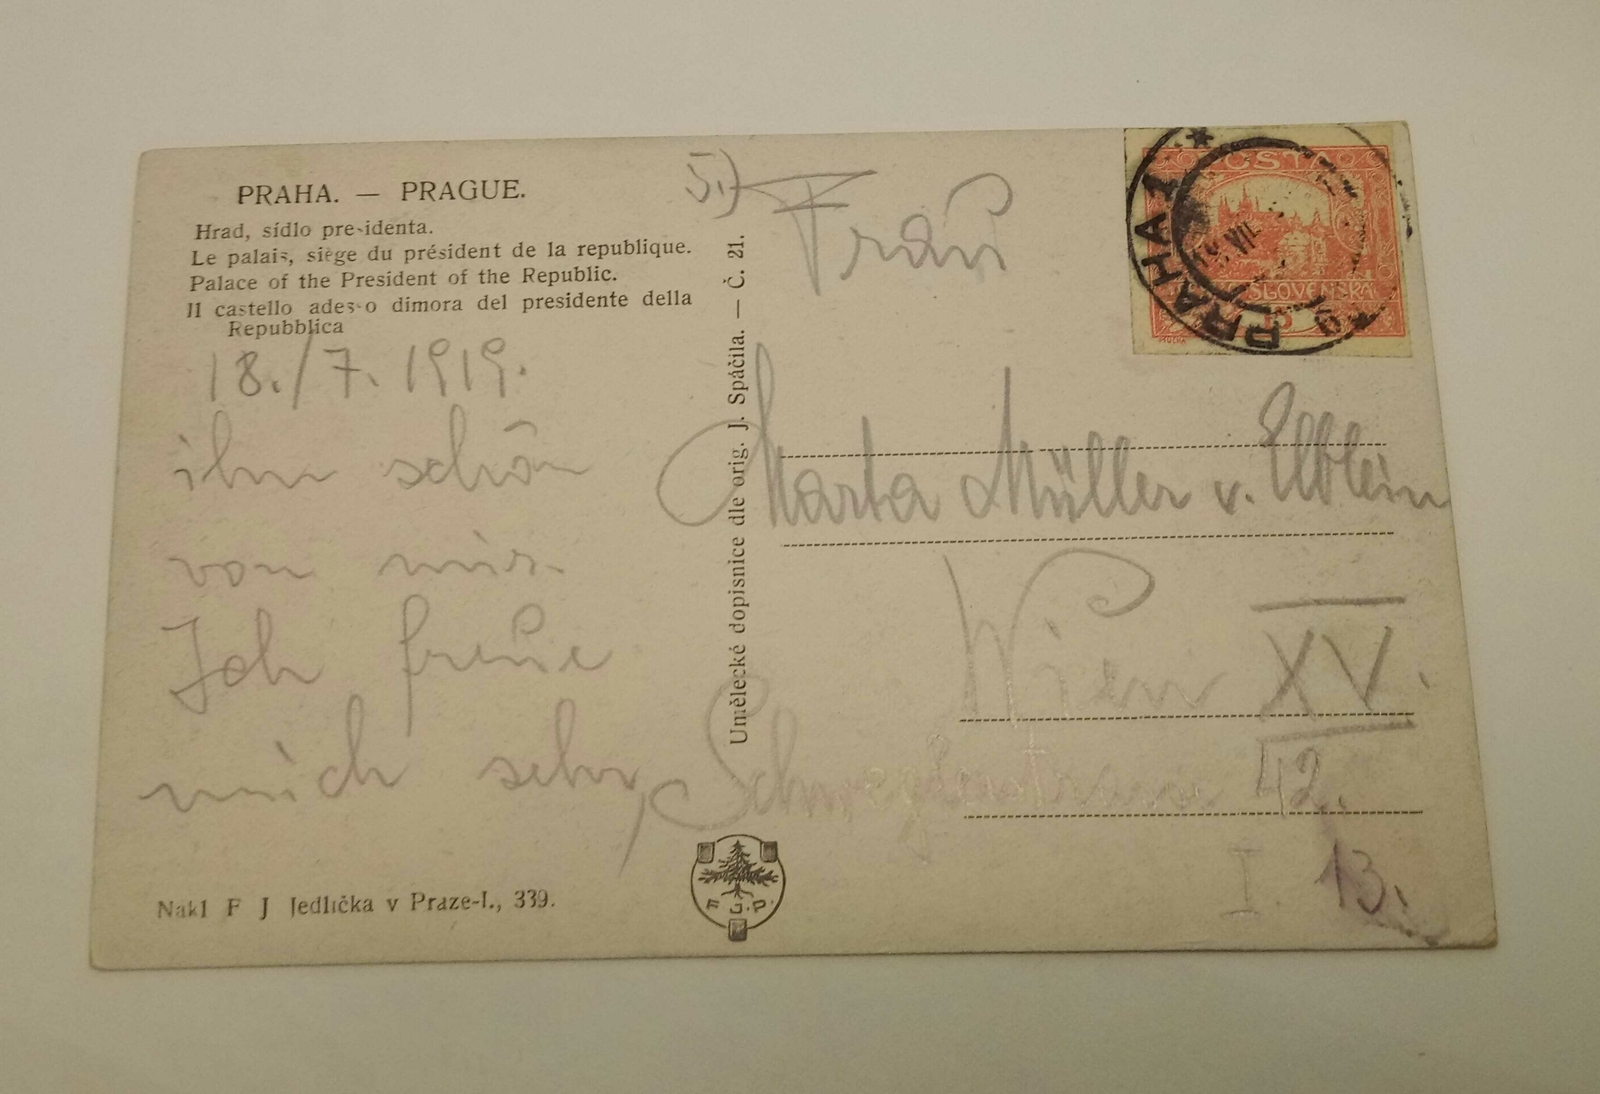 PRAHA. — PRAGUE.
Hrad, sídlo presidenta.
Le palais, siège du président de la republique.
Palace of the President of the Republic.
Il castello adesso dimora del presidente della
Repubblica
18./7. 1919.
ihm schön
von mir.
Ich freue
mich sehr,
Nakl F J Jedlička v Praze-I., 339.
Umělecké dopisnice dle orig. J. Spáčila. — Č. 21.
F J P
5.) Frau
Marta Müller v. Elblein
Wien XV.
42.
I 13.
POSTA
SLOVENSKÁ
15
MUCHA
PRAHA 1
VII